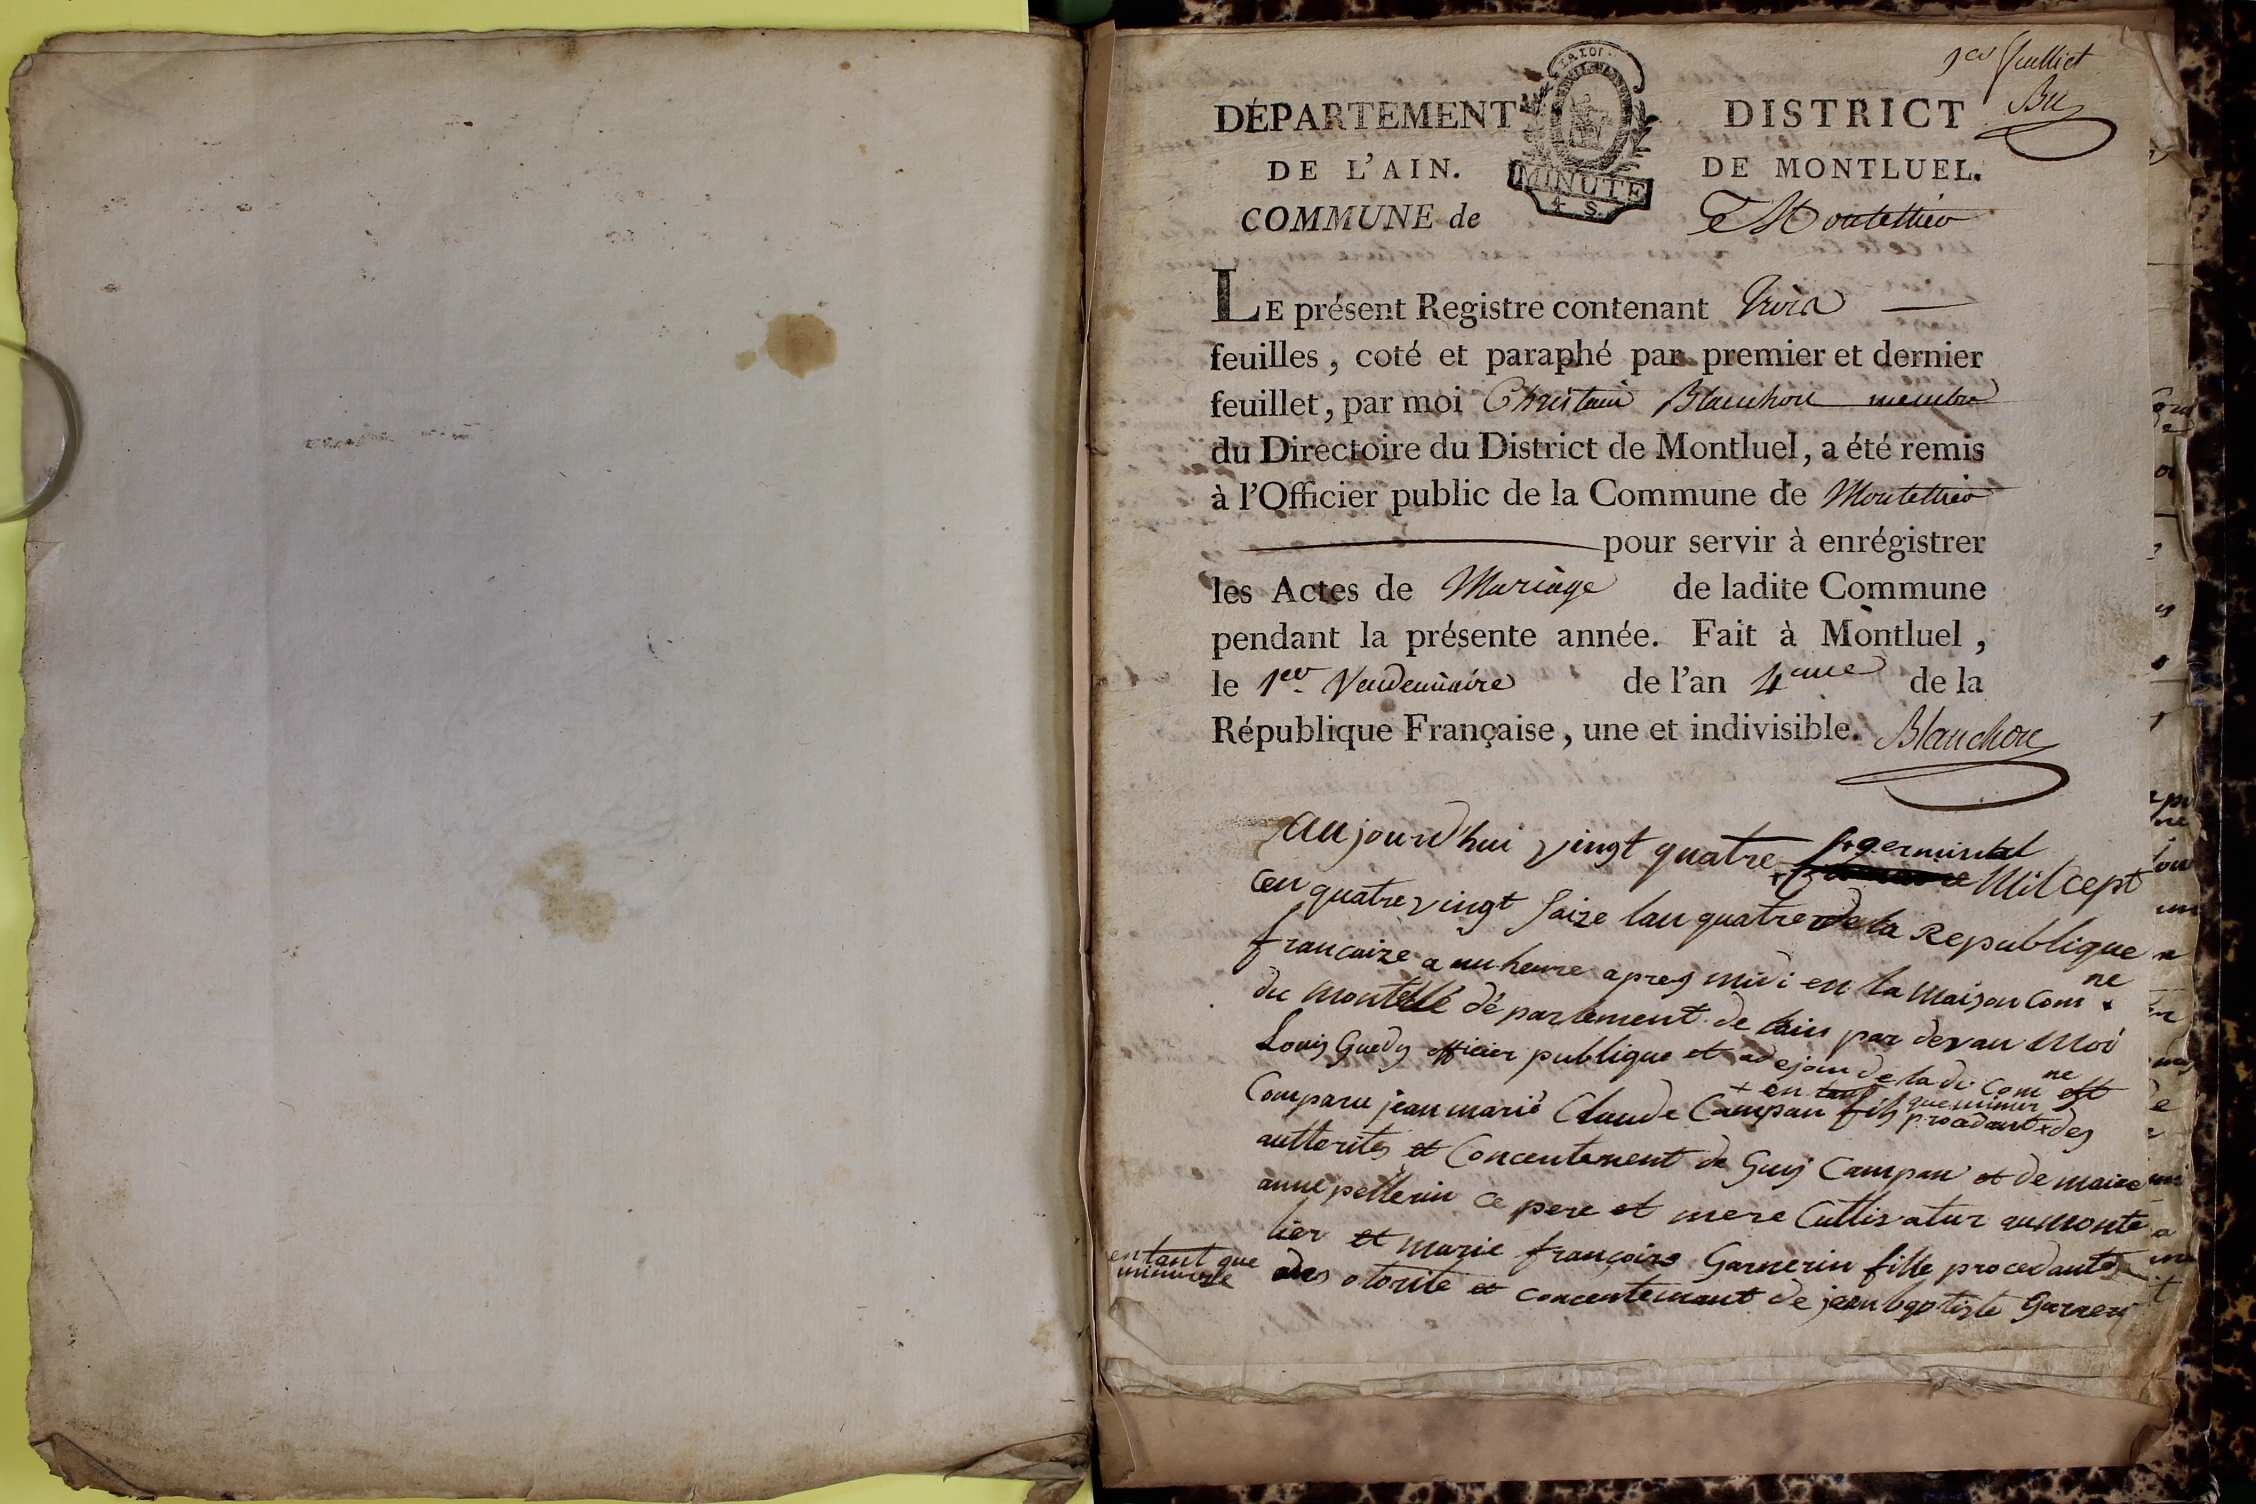 1er feuillet
DÉPARTEMENT DISTRICT
DE L'AIN. DE MONTLUEL.
MINUTE
4 S.
COMMUNE de Montellier
LE présent Registre contenant trois
feuilles, coté et paraphé par premier et dernier
feuillet, par moi Christain Blanchon membre
du Directoire du District de Montluel, a été remis
à l'Officier public de la Commune de Montellier
pour servir à enrégistrer
les Actes de Mariage de ladite Commune
pendant la présente année. Fait à Montluel,
le 1er Vendemiaire de l'an 4eme de la
République Française, une et indivisible. Blanchon
aujourd'hui vingt quatre germinal Mil cept
cen quatre vingt saize lan quatre de la Republique
francaize a un heure apres midi en la Maison Com ne
du Montellé département de lain par devan Moi
Louis Guedy officier publique et adejoin de la di Com ne est
+ en tant que minur
Comparu jean marie Claude Campan fils procedant des
autterités et Concentement de Guy Campan et de maire
anne pellerin ce pere et mere Cultivatur au monte
lier et marie françoise Garnerin fille procedante
en tant que minurle
des otorité et concentemant de jean baptiste Garneri